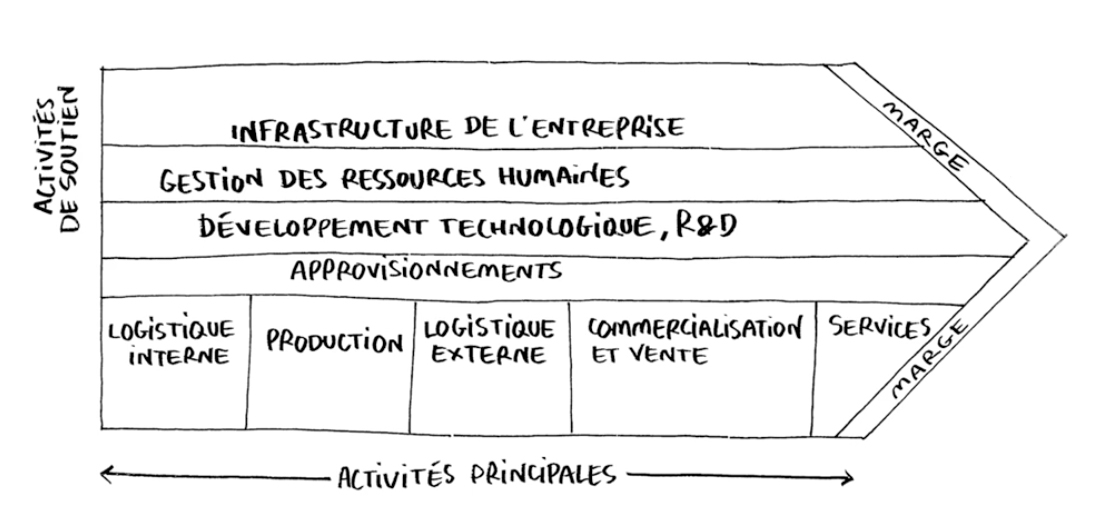 ACTIVITÉS
DE SOUTIEN
INFRASTRUCTURE DE L'ENTREPRISE
GESTION DES RESSOURCES HUMAINES
DÉVELOPPEMENT TECHNOLOGIQUE, R&D
APPROVISIONNEMENTS
MARGE
LOGISTIQUE
INTERNE
PRODUCTION
LOGISTIQUE
EXTERNE
COMMERCIALISATION
ET VENTE
SERVICES
MARGE
ACTIVITÉS PRINCIPALES